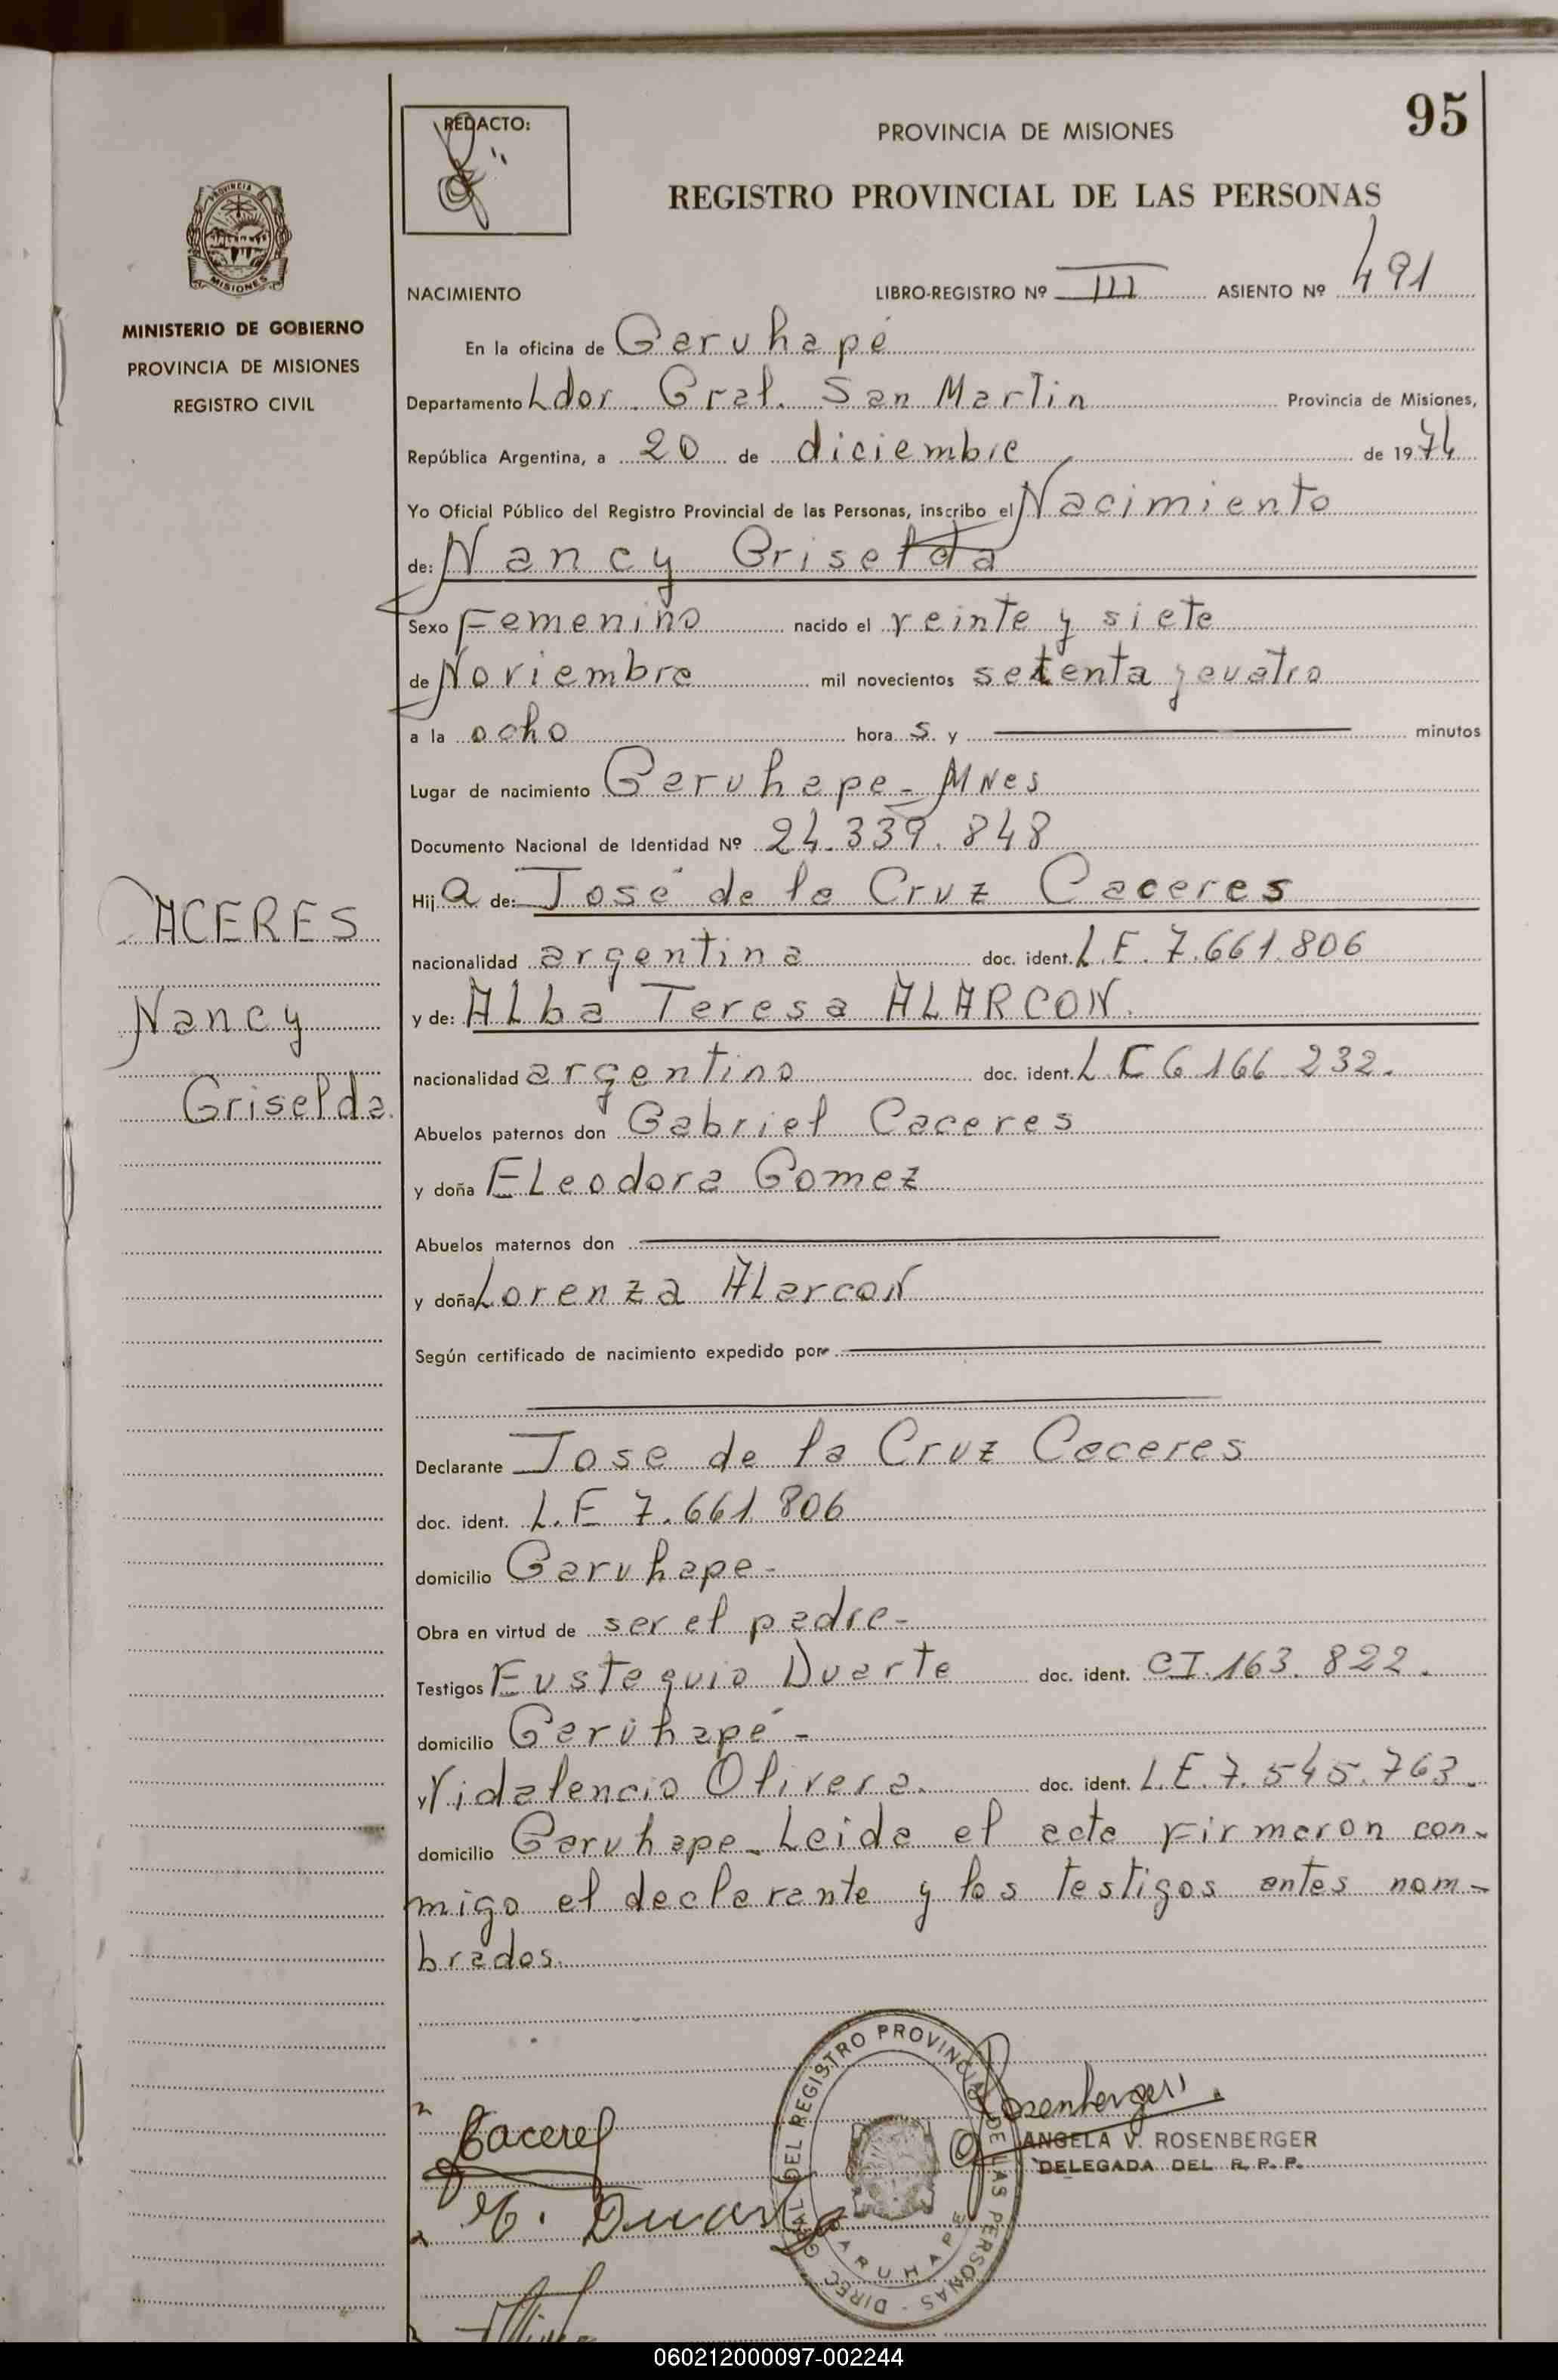 95
REDACTO:
PROVINCIA DE MISIONES
REGISTRO PROVINCIAL DE LAS PERSONAS
PROVINCIA
MISIONES
MINISTERIO DE GOBIERNO
PROVINCIA DE MISIONES
REGISTRO CIVIL
NACIMIENTO LIBRO-REGISTRO Nº III ASIENTO Nº 491
En la oficina de Garuhapé
Departamento Ldor. Gral. San Martin Provincia de Misiones,
República Argentina, a 20 de diciembre de 1974
Yo Oficial Público del Registro Provincial de las Personas, inscribo el Nacimiento
de: Nancy Griselda
Sexo Femenino nacido el veinte y siete
de Noviembre mil novecientos setenta y cuatro
a la ocho hora s y minutos
Lugar de nacimiento Garuhape - Mnes
Documento Nacional de Identidad Nº 24.339.848
Hij a de: José de la Cruz Caceres
nacionalidad argentina doc. ident. L.E. 7.661.806
y de: Alba Teresa ALARCON.
nacionalidad argentina doc. ident. LC 6 166 232.
Abuelos paternos don Gabriel Caceres
y doña Eleodora Gomez
Abuelos maternos don
y doña Lorenza Alarcon
Según certificado de nacimiento expedido por
Declarante Jose de la Cruz Caceres
doc. ident. L.E 7.661 806
domicilio Garuhape -
Obra en virtud de ser el padre -
Testigos Eustaquio Duarte doc. ident. CI.163.822.
domicilio Garuhapé -
y Vidalencio Olivera. doc. ident. L.E.7.545.763.
domicilio Garuhape - Leida el acta firmaron con-
migo el declarante y los testigos antes nom-
brados.
CACERES
Nancy
Griselda.
Caceres
E. Duarte
DIREC. GRAL. DEL REGISTRO PROVINCIAL DE LAS PERSONAS -
GARUHAPE
Rosenberger
ANGELA V. ROSENBERGER
DELEGADA DEL R. P. P.
060212000097-002244